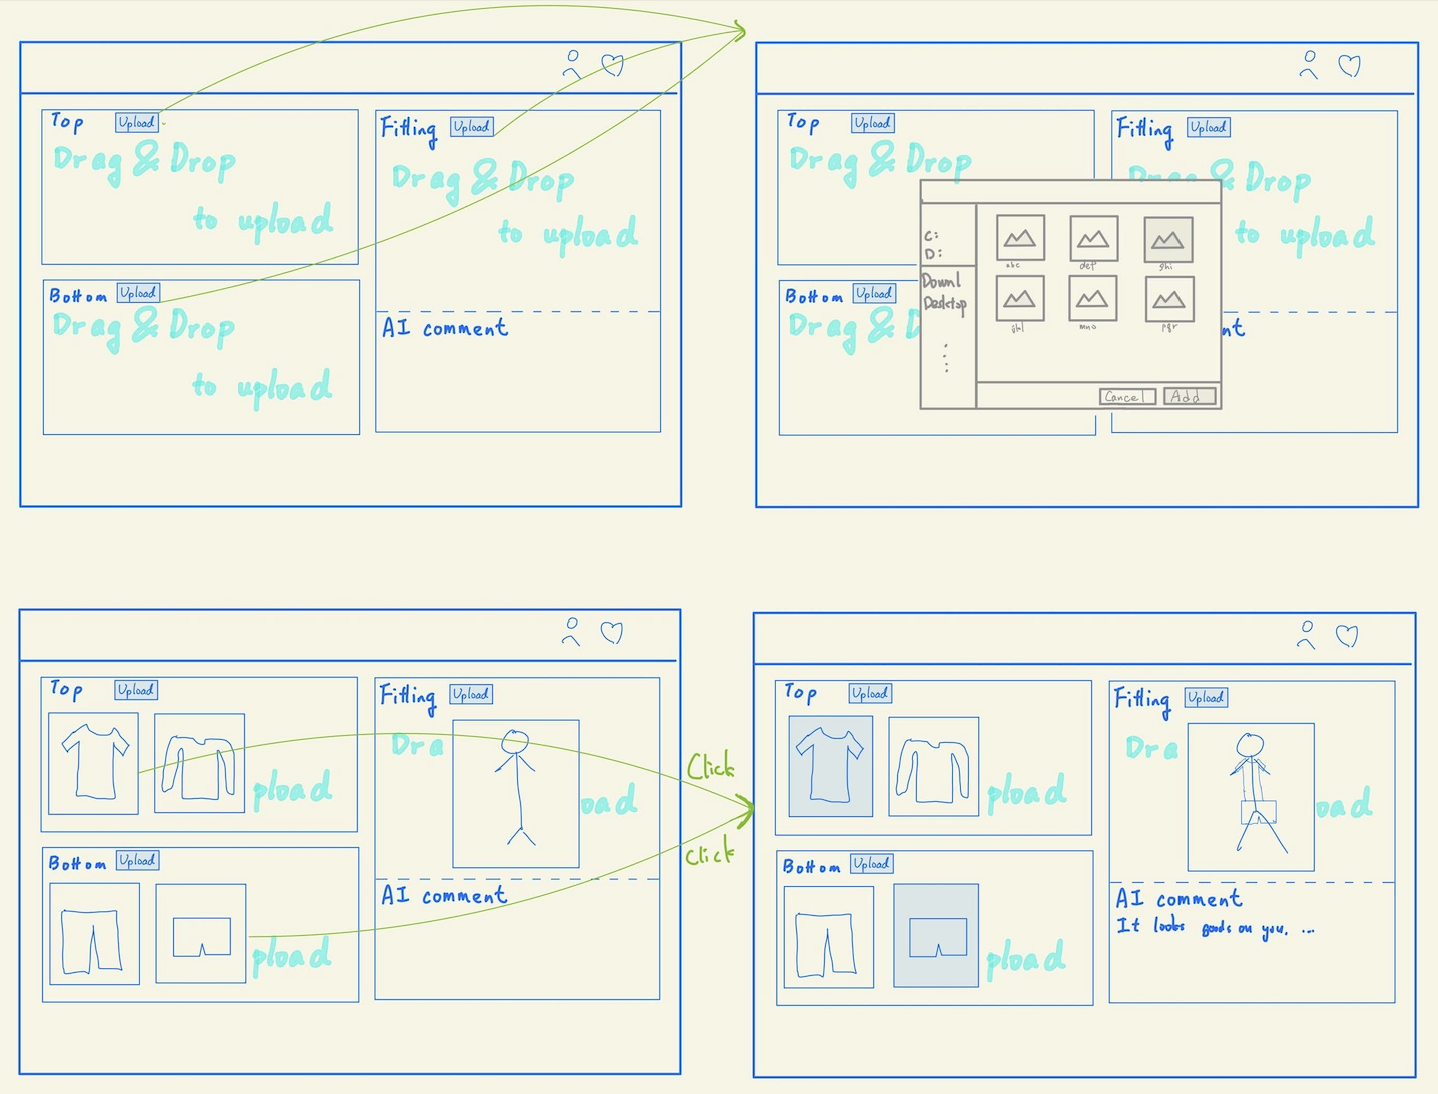 Top Upload
Drag & Drop
to upload
Bottom Upload
Drag & Drop
to upload
Fitting Upload
Drag & Drop
to upload
AI comment
Top Upload
Drag & Drop
Bottom Upload
Drag & D
Fitting Upload
Drag & Drop
to upload
nt
C:
D:
Downl
Desktop
abc
def
ghi
jkl
mno
pqr
Cancel
Add
Top Upload
pload
Bottom Upload
pload
Fitting Upload
Dra
oad
AI comment
Click
Click
Top Upload
pload
Bottom Upload
pload
Fitting Upload
Dra
oad
AI comment
It looks goods on you, ...